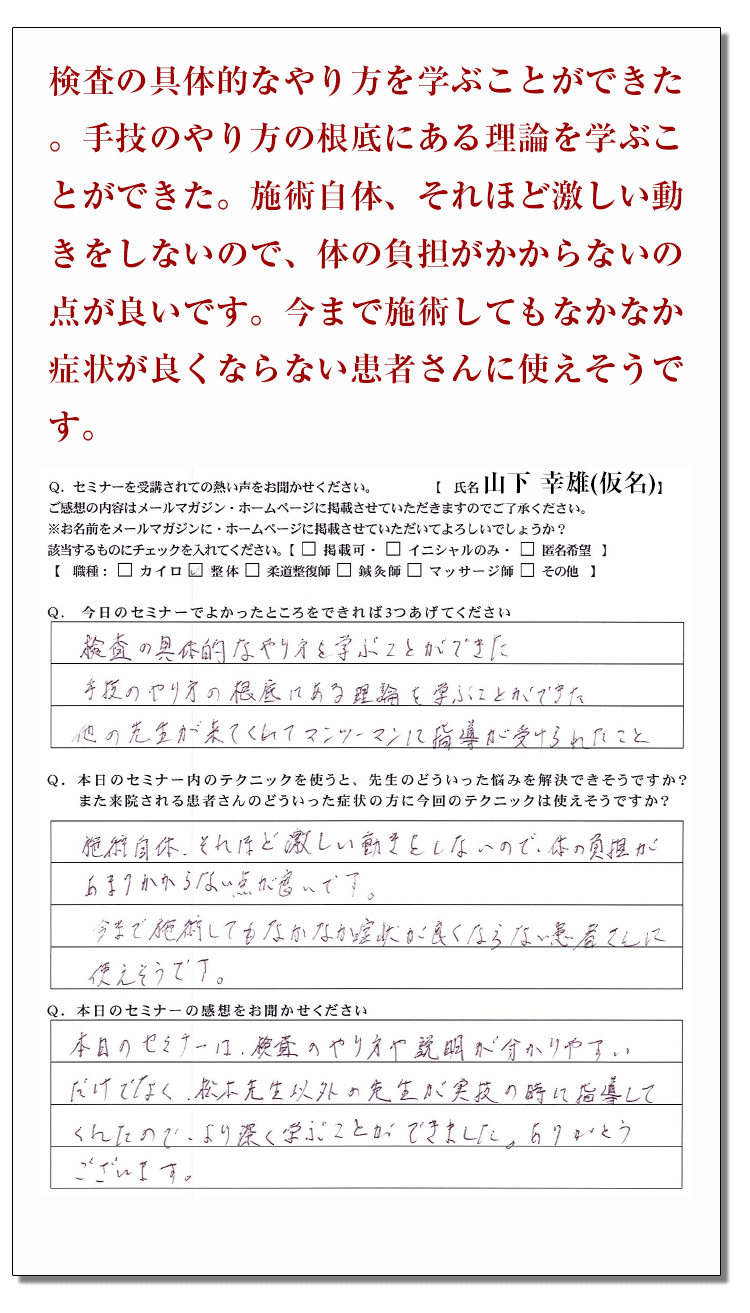 検査の具体的なやり方を学ぶことができた
。手技のやり方の根底にある理論を学ぶこ
とができた。施術自体、それほど激しい動
きをしないので、体の負担がかからないの
点が良いです。今まで施術してもなかなか
症状が良くならない患者さんに使えそうで
す。
Q．セミナーを受講されての熱い声をお聞かせください。　【　氏名 山下 幸雄(仮名)】
ご感想の内容はメールマガジン・ホームページに掲載させていただきますのでご了承ください。
※お名前をメールマガジンに・ホームページに掲載させていただいてよろしいでしょうか？
該当するものにチェックを入れてください。【 □ 掲載可・ □ イニシャルのみ・ □ 匿名希望 】
【　職種： □ カイロ ☑ 整体 □ 柔道整復師 □ 鍼灸師 □ マッサージ師 □ その他 】
Q．　今日のセミナーでよかったところをできれば3つあげてください
検査の具体的なやり方を学ぶことができた
手技のやり方の根底にある理論を学ぶことができた
他の先生が来てくれてマンツーマンに指導が受けられたこと
Q．本日のセミナー内のテクニックを使うと、先生のどういった悩みを解決できそうですか？
また来院される患者さんのどういった症状の方に今回のテクニックは使えそうですか？
施術自体、それほど激しい動きをしないので、体の負担が
あまりかからない点が良いです。
今まで施術してもなかなか症状が良くならない患者さんに
使えそうです。
Q．本日のセミナーの感想をお聞かせください
本日のセミナーは、検査のやり方や説明が分かりやすい
だけでなく、松本先生以外の先生が実技の時に指導して
くれたので、より深く学ぶことができました。ありがとう
ございます。